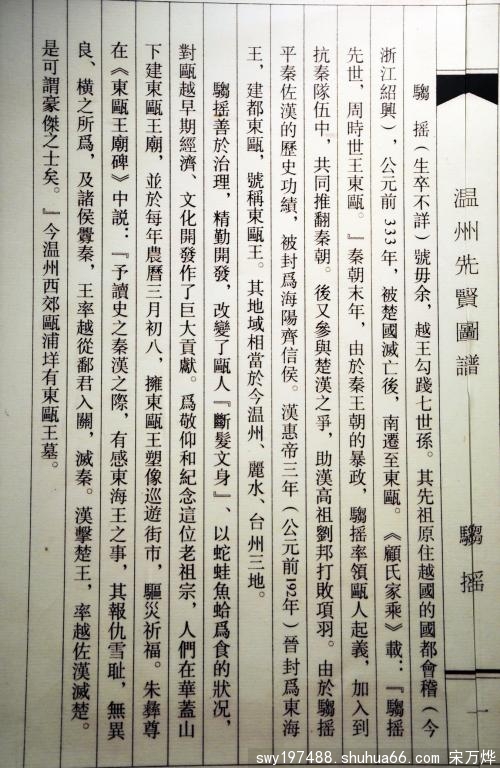 温州先賢圖譜
騶摇
一
騶　摇（生卒不詳）號毋余，越王勾踐七世孫。其先祖原住越國的國都會稽（今
浙江紹興），公元前 333 年，被楚國滅亡後，南遷至東甌。《顧氏家乘》載：『騶摇
先世，周時世王東甌。』秦朝末年，由於秦王朝的暴政，騶摇率領甌人起義，加入到
抗秦隊伍中，共同推翻秦朝。後又參與楚漢之爭，助漢高祖劉邦打敗項羽。由於騶摇
平秦佐漢的歷史功績，被封爲海陽齊信侯。漢惠帝三年（公元前192年）晉封爲東海
王，建都東甌，號稱東甌王。其地域相當於今温州、麗水、台州三地。
騶摇善於治理，精勤開發，改變了甌人『斷髮文身』、以蛇蛙魚蛤爲食的狀况，
對甌越早期經濟、文化開發作了巨大貢獻。爲敬仰和紀念這位老祖宗，人們在華蓋山
下建東甌王廟，並於每年農曆三月初八，擁東甌王塑像巡遊街市，驅災祈福。朱彝尊
在《東甌王廟碑》中説：『予讀史之秦漢之際，有感東海王之事，其報仇雪耻，無異
良、横之所爲，及諸侯釁秦，王率越從鄱君入關，滅秦。漢擊楚王，率越佐漢滅楚。
是可謂豪傑之士矣。』今温州西郊甌浦垟有東甌王墓。
swy197488.shuhua66.com 宋万烨